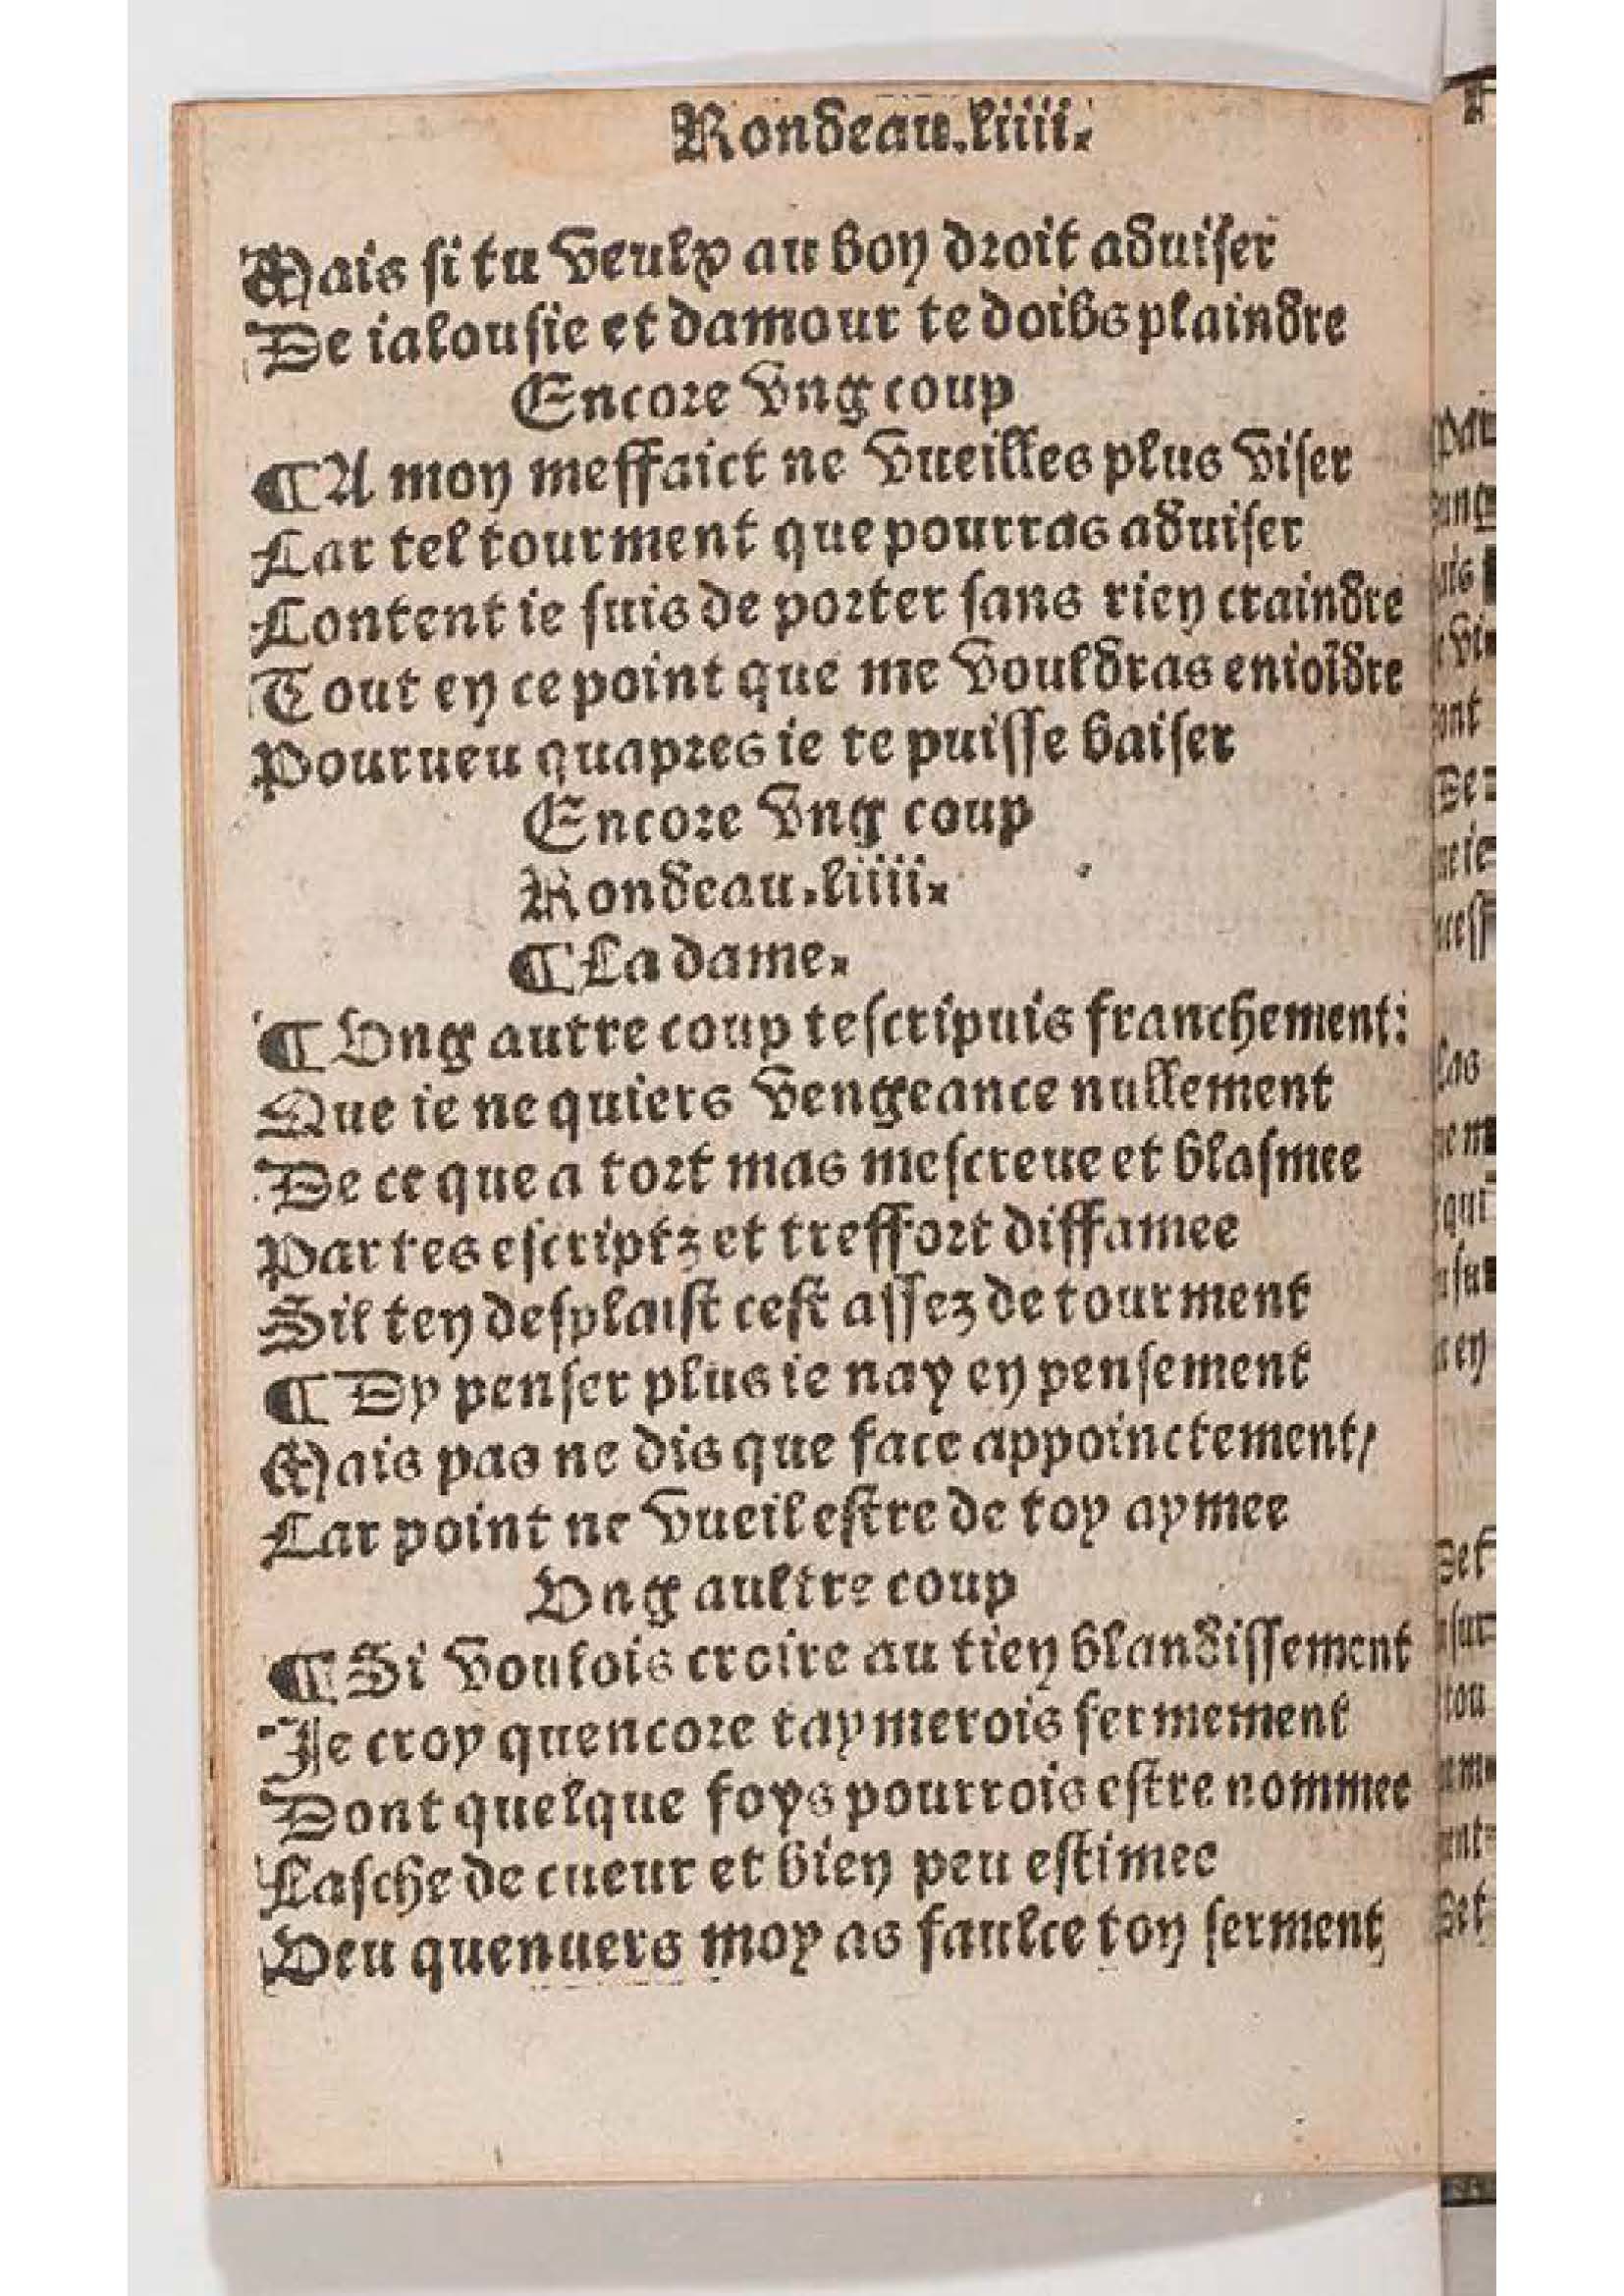 Rondeau.liiii.
Mais si tu veulx au bon droit aduiser
De ialousie et damour te doibs plaindre
Encore vng coup
¶A mon meffaict ne vueilles plus viser
Car tel tourment que pourras aduiser
Content ie suis de porter sans rien craindre
Tout en ce point que me vouldras enioĩdre
Pourueu quapres ie te puisse baiser
Encore vng coup
Rondeau.liiii.
¶La dame.
¶Vng autre coup tescripuis franchement:
Que ie ne quiers vengeance nullement
De ce que a tort mas mescreue et blasmee
Par tes escriptz et treffort diffamee
Sil ten desplaist cest assez de tourment
¶Dy penser plus ie nay en pensement
Mais pas ne dis que face appoinctement/
Car point ne vueil estre de toy aymee
Vng aultre coup
¶Si voulois croire au tien blandissement
Je croy quencore taymerois fermement
Dont quelque foys pourrois estre nommee
Lasche de cueur et bien peu estimee
Veu quenuers moy as faulce ton serment